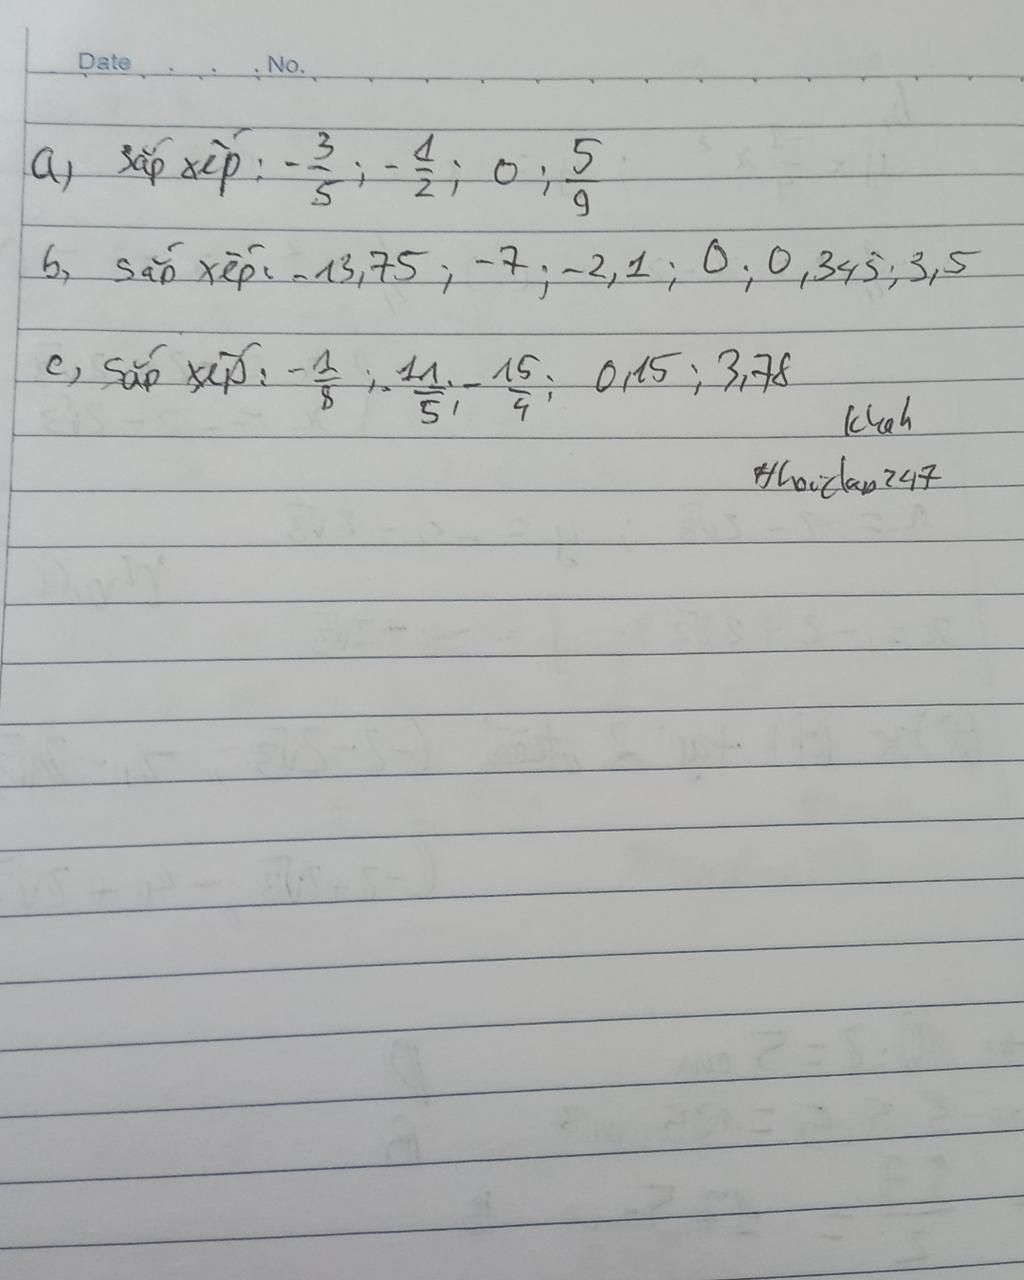 Date . . . . No.
a, sắp xếp: -3/5; -1/2; 0; 5/9
b, sắp xếp: -13,75; -7; -2,1; 0; 0,345; 3,5
c, sắp xếp: -1/8; -11/5; -15/4; 0,15; 3,78
#hoidap247